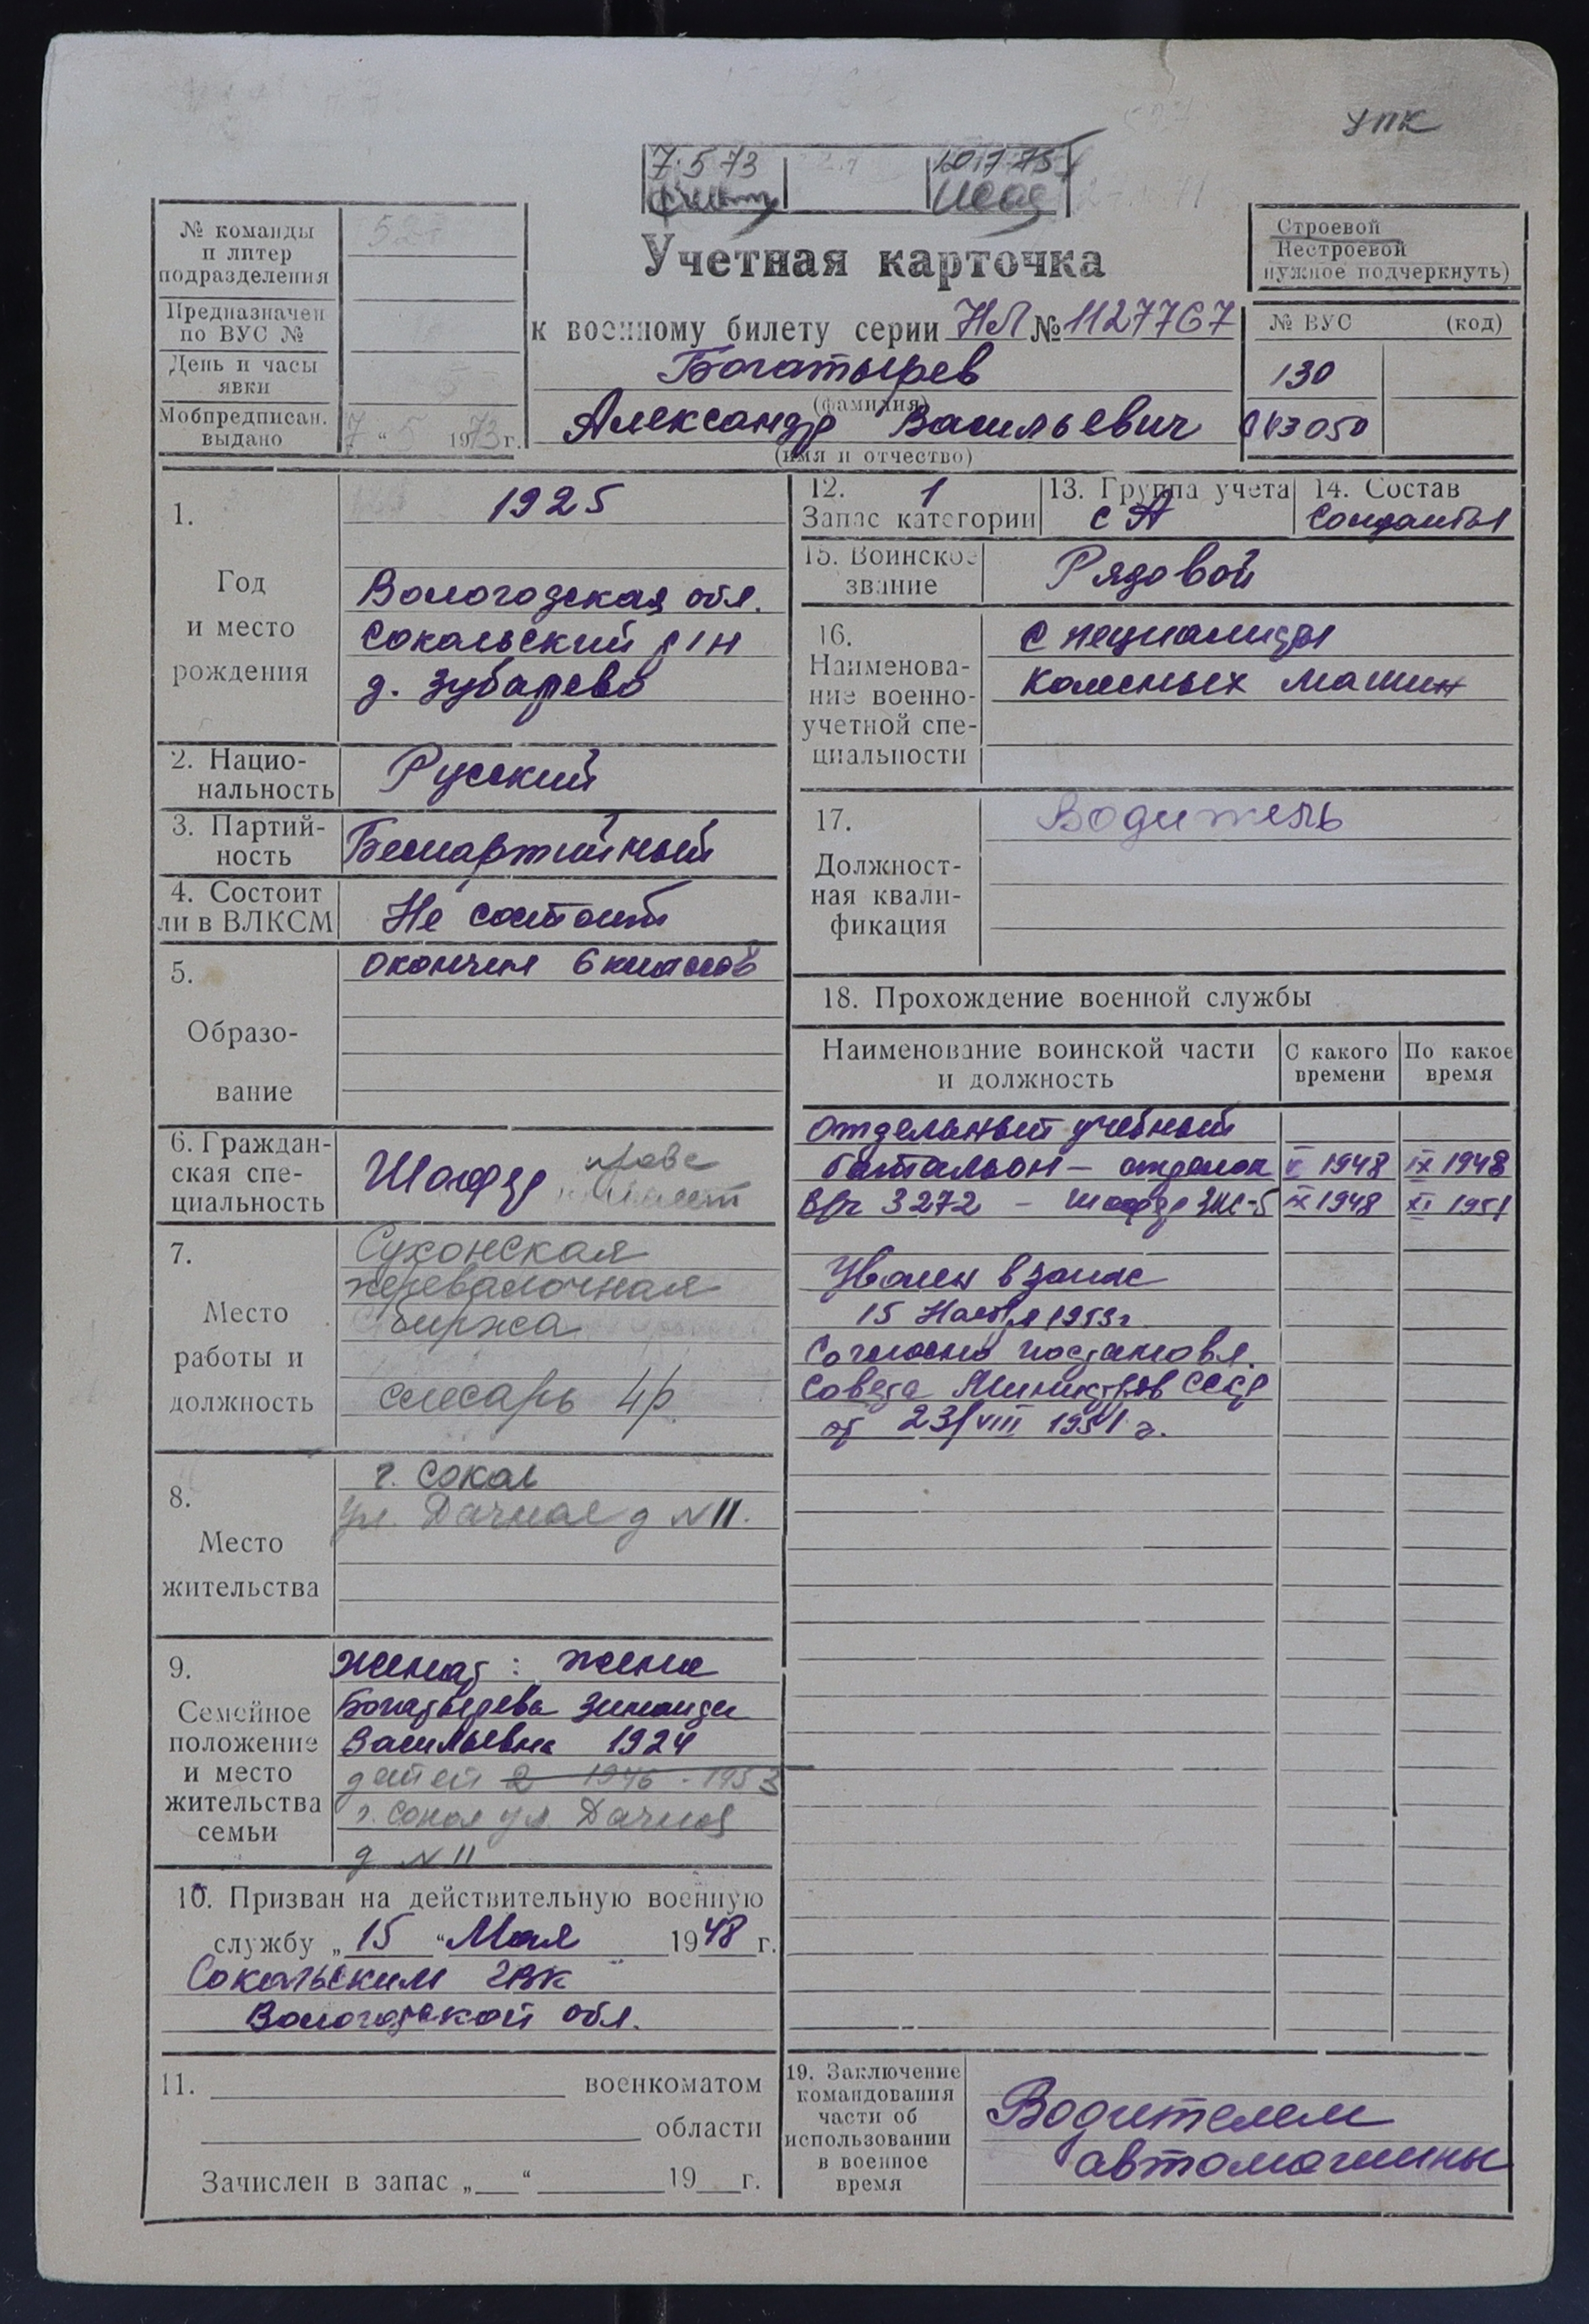 УПК
7.5.73
10.1.75
№ команды
и литер
подразделения
Предназначен
по ВУС №
День и часы
явки
Мобпредписан.
выдано
7 " 5 1973 г.
Учетная карточка
к военному билету серии НЛ № 1127767
Богатырев
(фамилия)
Александр Васильевич
(имя и отчество)
Строевой
Нестроевой
нужное подчеркнуть)
№ ВУС (код)
130
043050
1.
Год
и место
рождения
1925
Вологодская обл.
Сокольский р/н
д. Зубарево
2. Нацио-
нальность
Русский
3. Партий-
ность
Беспартийный
4. Состоит
ли в ВЛКСМ
Не состоит
5.
Образо-
вание
окончил 6 классов
6. Граждан-
ская спе-
циальность
Шофер
7.
Место
работы и
должность
Сухонская
перевалочная
биржа
слесарь 4р.
8.
Место
жительства
г. Сокол
ул. Дачная д N 11.
9.
Семейное
положение
и место
жительства
семьи
женат: жена
Богатырева Зинаида
Васильевна 1924
детей 2 1946 - 1953
г. Сокол ул. Дачная
д N 11
10. Призван на действительную военную
службу „ 15 “ Мая 1948 г.
Сокольским ГВК
Вологодской обл.
11. военкоматом
области
Зачислен в запас „ “ 19 г.
12. 1
Запас категории
13. Группа учета
СА
14. Состав
Солдаты
15. Воинское
звание
Рядовой
16.
Наименова-
ние военно-
учетной спе-
циальности
Специалисты
колесных машин
17.
Должност-
ная квали-
фикация
Водитель
18. Прохождение военной службы
Наименование воинской части
и должность
С какого
времени
По какое
время
отдельный учебный
батальон – V 1948 IX 1948
В/ч 3272 – шофер ЗИС-5 IX 1948 XI 1951
Уволен в запас
15 Ноября 1953г.
Согласно постановл.
Совета Министров СССР
от 23/VIII 1951 г.
19. Заключение
командования
части об
использовании
в военное
время
Водителем
автомашины